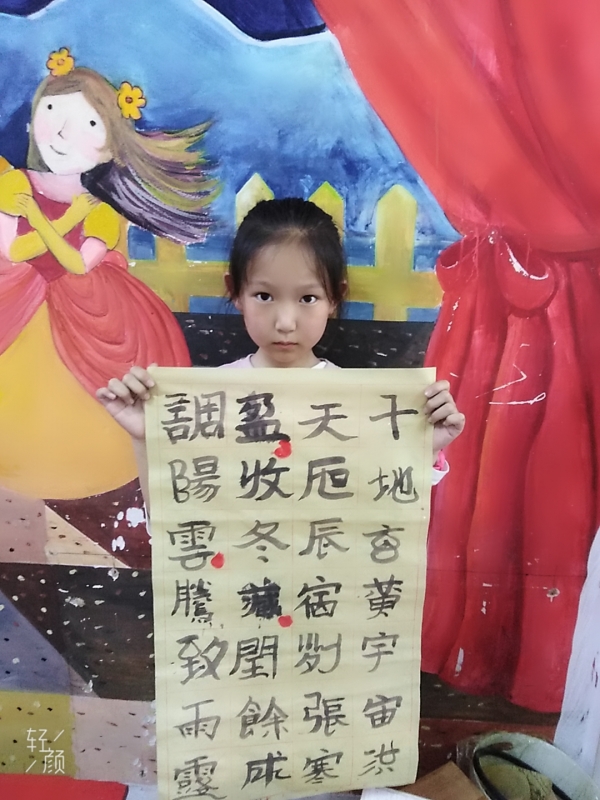 千地玄黄宇宙洪
天辰宿列張寒
盈收冬藏閏餘成
調陽雲騰致雨露
轻颜